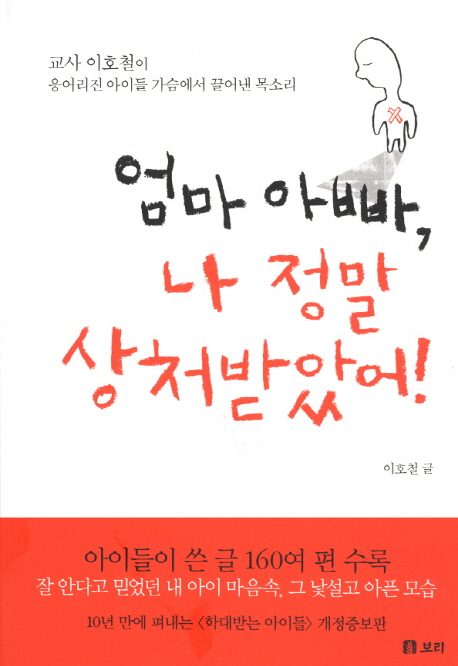 교사 이호철이
응어리진 아이들 가슴에서 끌어낸 목소리
엄마 아빠,
나 정말
상처받았어!
이호철 글
아이들이 쓴 글 160여 편 수록
잘 안다고 믿었던 내 아이 마음속, 그 낯설고 아픈 모습
10년 만에 펴내는 〈학대받는 아이들〉 개정증보판
보리